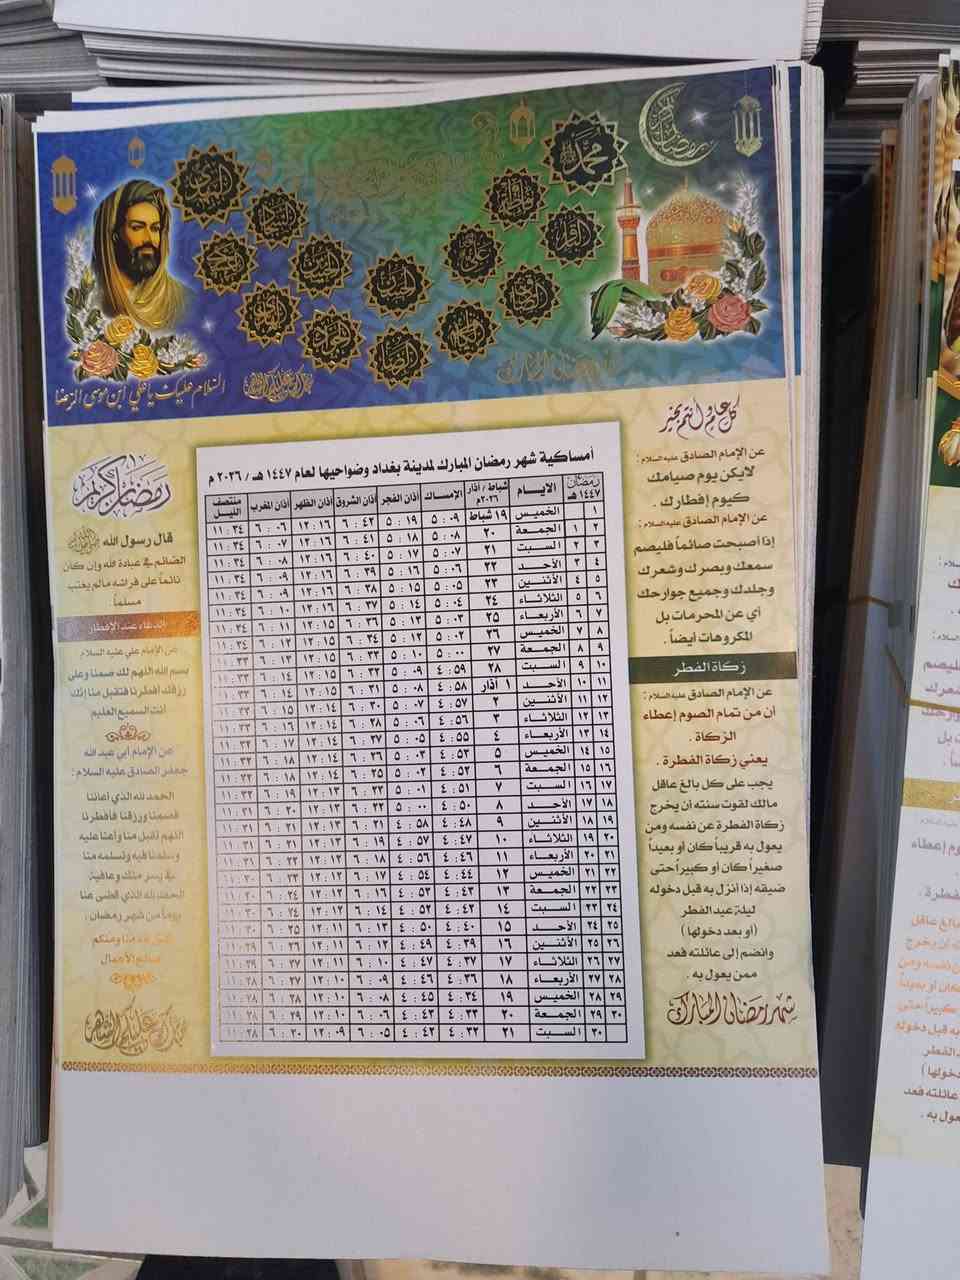 محمد
رمضان
السلام عليك يا علي ابن موسى الرضا
مبارك عليكم الشهر
كل عام وأنتم بخير
عن الإمام الصادق عليه السلام :
لايكن يوم صيامك
كيوم إفطارك .
عن الإمام الصادق عليه السلام :
إذا أصبحت صائماً فليصم
سمعك وبصرك وشعرك
وجلدك وجميع جوارحك
أي عن المحرمات بل
المكروهات أيضاً .
زكاة الفطر
عن الإمام الصادق عليه السلام :
أن من تمام الصوم إعطاء
الزكاة .
يعني زكاة الفطرة .
يجب على كل بالغ عاقل
مالك لقوت سنته أن يخرج
زكاة الفطرة عن نفسه ومن
يعول به قريباً كان أو بعيداً
صغيراً كان أو كبيراً حتى
ضيفه إذا أنزل به قبل دخوله
ليلة عيد الفطر
(أو بعد دخولها)
وانضم إلى عائلته فعد
ممن يعول به .
شهر رمضان المبارك
أمساكية شهر رمضان المبارك لمدينة بغداد وضواحيها لعام ١٤٤٧ هـ / ٢٠٢٦ م
رمضان ١٤٤٧ هـ الايـــام شباط / أذار ٢٠٢٦م الإمساك أذان الفجر أذان الشروق أذان الظهر أذان المغرب منتصف الليل
١ الخميس ١٩ شباط ٥ : ٠٩ ٥ : ١٩ ٦ : ٤٢ ١٢ : ١٦ ٦ : ٠٦ ١١ : ٣٤
٢ ١ الجمعة ٢٠ ٥ : ٠٨ ٥ : ١٨ ٦ : ٤١ ١٢ : ١٦ ٦ : ٠٧ ١١ : ٣٤
٣ ٢ السبت ٢١ ٥ : ٠٧ ٥ : ١٧ ٦ : ٤٠ ١٢ : ١٦ ٦ : ٠٨ ١١ : ٣٤
٤ ٣ الأحــد ٢٢ ٥ : ٠٦ ٥ : ١٦ ٦ : ٣٩ ١٢ : ١٦ ٦ : ٠٩ ١١ : ٣٤
٥ ٤ الأثنين ٢٣ ٥ : ٠٥ ٥ : ١٥ ٦ : ٣٨ ١٢ : ١٦ ٦ : ٠٩ ١١ : ٣٤
٦ ٥ الثلاثاء ٢٤ ٥ : ٠٤ ٥ : ١٤ ٦ : ٣٧ ١٢ : ١٦ ٦ : ١٠ ١١ : ٣٤
٧ ٦ الأربعاء ٢٥ ٥ : ٠٣ ٥ : ١٣ ٦ : ٣٦ ١٢ : ١٥ ٦ : ١١ ١١ : ٣٤
٨ ٧ الخميس ٢٦ ٥ : ٠٢ ٥ : ١٢ ٦ : ٣٤ ١٢ : ١٥ ٦ : ١٢ ١١ : ٣٤
٩ ٨ الجمعة ٢٧ ٥ : ٠٠ ٥ : ١٠ ٦ : ٣٣ ١٢ : ١٥ ٦ : ١٣ ١١ : ٣٣
١٠ ٩ السبت ٢٨ ٤ : ٥٩ ٥ : ٠٩ ٦ : ٣٢ ١٢ : ١٥ ٦ : ١٤ ١١ : ٣٣
١١ ١٠ الأحــد ١ أذار ٤ : ٥٨ ٥ : ٠٨ ٦ : ٣١ ١٢ : ١٥ ٦ : ١٤ ١١ : ٣٣
١٢ ١١ الأثنين ٢ ٤ : ٥٧ ٥ : ٠٧ ٦ : ٣٠ ١٢ : ١٤ ٦ : ١٥ ١١ : ٣٣
١٣ ١٢ الثلاثاء ٣ ٤ : ٥٦ ٥ : ٠٦ ٦ : ٢٨ ١٢ : ١٤ ٦ : ١٦ ١١ : ٣٣
١٤ ١٣ الأربعاء ٤ ٤ : ٥٥ ٥ : ٠٥ ٦ : ٢٧ ١٢ : ١٤ ٦ : ١٧ ١١ : ٣٢
١٥ ١٤ الخميس ٥ ٤ : ٥٣ ٥ : ٠٣ ٦ : ٢٦ ١٢ : ١٤ ٦ : ١٨ ١١ : ٣٢
١٦ ١٥ الجمعة ٦ ٤ : ٥٢ ٥ : ٠٢ ٦ : ٢٥ ١٢ : ١٤ ٦ : ١٨ ١١ : ٣٢
١٧ ١٦ السبت ٧ ٤ : ٥١ ٥ : ٠١ ٦ : ٢٣ ١٢ : ١٣ ٦ : ١٩ ١١ : ٣٢
١٨ ١٧ الأحــد ٨ ٤ : ٥٠ ٥ : ٠٠ ٦ : ٢٢ ١٢ : ١٣ ٦ : ٢٠ ١١ : ٣١
١٩ ١٨ الأثنين ٩ ٤ : ٤٨ ٤ : ٥٨ ٦ : ٢١ ١٢ : ١٣ ٦ : ٢١ ١١ : ٣١
٢٠ ١٩ الثلاثاء ١٠ ٤ : ٤٧ ٤ : ٥٧ ٦ : ١٩ ١٢ : ١٣ ٦ : ٢١ ١١ : ٣١
٢١ ٢٠ الأربعاء ١١ ٤ : ٤٦ ٤ : ٥٦ ٦ : ١٨ ١٢ : ١٢ ٦ : ٢٢ ١١ : ٣١
٢٢ ٢١ الخميس ١٢ ٤ : ٤٤ ٤ : ٥٤ ٦ : ١٧ ١٢ : ١٢ ٦ : ٢٣ ١١ : ٣٠
٢٣ ٢٢ الجمعة ١٣ ٤ : ٤٣ ٤ : ٥٣ ٦ : ١٦ ١٢ : ١٢ ٦ : ٢٤ ١١ : ٣٠
٢٤ ٢٣ السبت ١٤ ٤ : ٤٢ ٤ : ٥٢ ٦ : ١٤ ١٢ : ١٢ ٦ : ٢٤ ١١ : ٣٠
٢٥ ٢٤ الأحــد ١٥ ٤ : ٤٠ ٤ : ٥٠ ٦ : ١٣ ١٢ : ١١ ٦ : ٢٥ ١١ : ٣٠
٢٦ ٢٥ الأثنين ١٦ ٤ : ٣٩ ٤ : ٤٩ ٦ : ١٢ ١٢ : ١١ ٦ : ٢٦ ١١ : ٢٩
٢٧ ٢٦ الثلاثاء ١٧ ٤ : ٣٧ ٤ : ٤٧ ٦ : ١٠ ١٢ : ١١ ٦ : ٢٧ ١١ : ٢٩
٢٨ ٢٧ الأربعاء ١٨ ٤ : ٣٦ ٤ : ٤٦ ٦ : ٠٩ ١٢ : ١٠ ٦ : ٢٧ ١١ : ٢٩
٢٩ ٢٨ الخميس ١٩ ٤ : ٣٤ ٤ : ٤٥ ٦ : ٠٨ ١٢ : ١٠ ٦ : ٢٨ ١١ : ٢٨
٣٠ ٢٩ الجمعة ٢٠ ٤ : ٣٣ ٤ : ٤٣ ٦ : ٠٦ ١٢ : ١٠ ٦ : ٢٩ ١١ : ٢٨
٣٠ السبت ٢١ ٤ : ٣٢ ٤ : ٤٢ ٦ : ٠٥ ١٢ : ٠٩ ٦ : ٣٠ ١١ : ٢٨
رمضان كريم
قال رسول الله
الصائم في عبادة الله وإن كان
نائماً على فراشه مالم يغتب
مسلماً
الدعاء عند الإفطار
عن الإمام علي عليه السلام
بسم الله اللهم لك صمنا وعلى
رزقك أفطرنا فتقبل منا إنك
أنت السميع العليم
عن الإمام أبي عبد الله
جعفر الصادق عليه السلام :
الحمد لله الذي أعاننا
فصمنا ورزقنا فأفطرنا
اللهم تقبل منا وأعنا عليه
وسلمنا فيه وتسلمه منا
في يسر منك وعافية
الحمد لله الذي قضى عنا
يوماً من شهر رمضان .
تقبل الله منا ومنكم
صالح الأعمال
مبارك عليكم الشهر